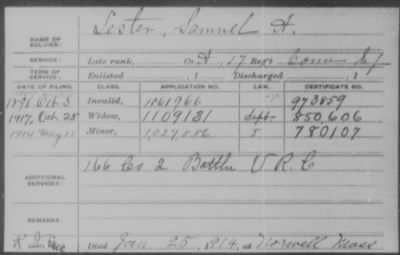 NAME OF SOLDIER: Lester, Samuel A.
SERVICE: Late rank, Co. A, 17 Reg't Conn Inf
TERM OF SERVICE: Enlisted , 1 Discharged , 1
DATE OF FILING. CLASS. APPLICATION NO. LAW. CERTIFICATE NO.
1891 Oct 5 Invalid, 1061966 973859
1917, Oct 25 Widow, 1109131 850,606
1914 May 12 Minor, 1,027,886 J 780107
ADDITIONAL SERVICES: 166 Co 2 Battln V R C
REMARKS:
Died Jan 25, 1914, at Norwell Mass